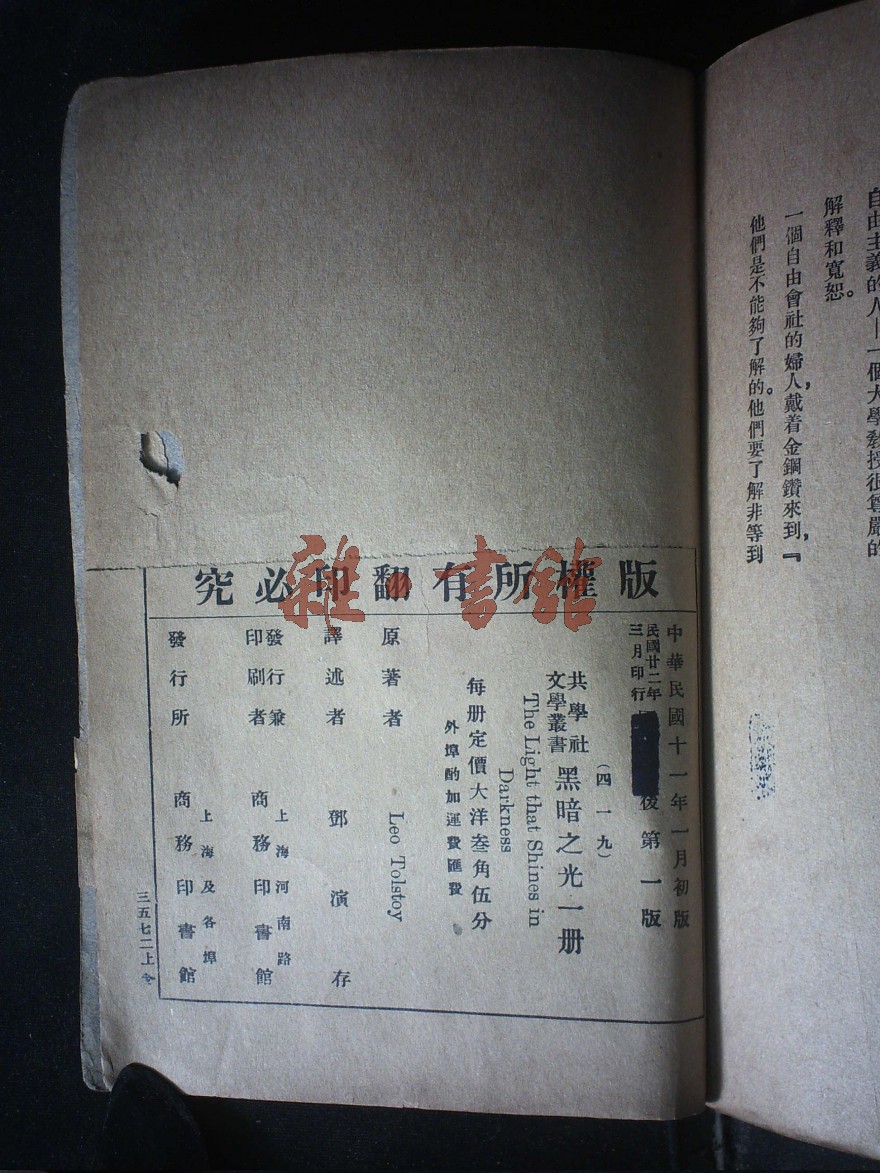 自由主義的人—一個大學教授很尊嚴的
解釋和寬恕。
一個自由會社的婦人戴着金鋼鑽來到，『
他們是不能夠了解的。他們要了解非等到
版權所有翻印必究
中華民國十一年一月初版
民國廿二年
三月印行
後第一版
（四一九）
共學社
文學叢書
黑暗之光一册
The Light that Shines in
Darkness
每册定價大洋叁角伍分
外埠酌加運費匯費
原著者 Leo Tolstoy
譯述者 鄧演存
發行兼
印刷者
上海河南路
商務印書館
發行所
上海及各埠
商務印書館
三五七二上
雜書館